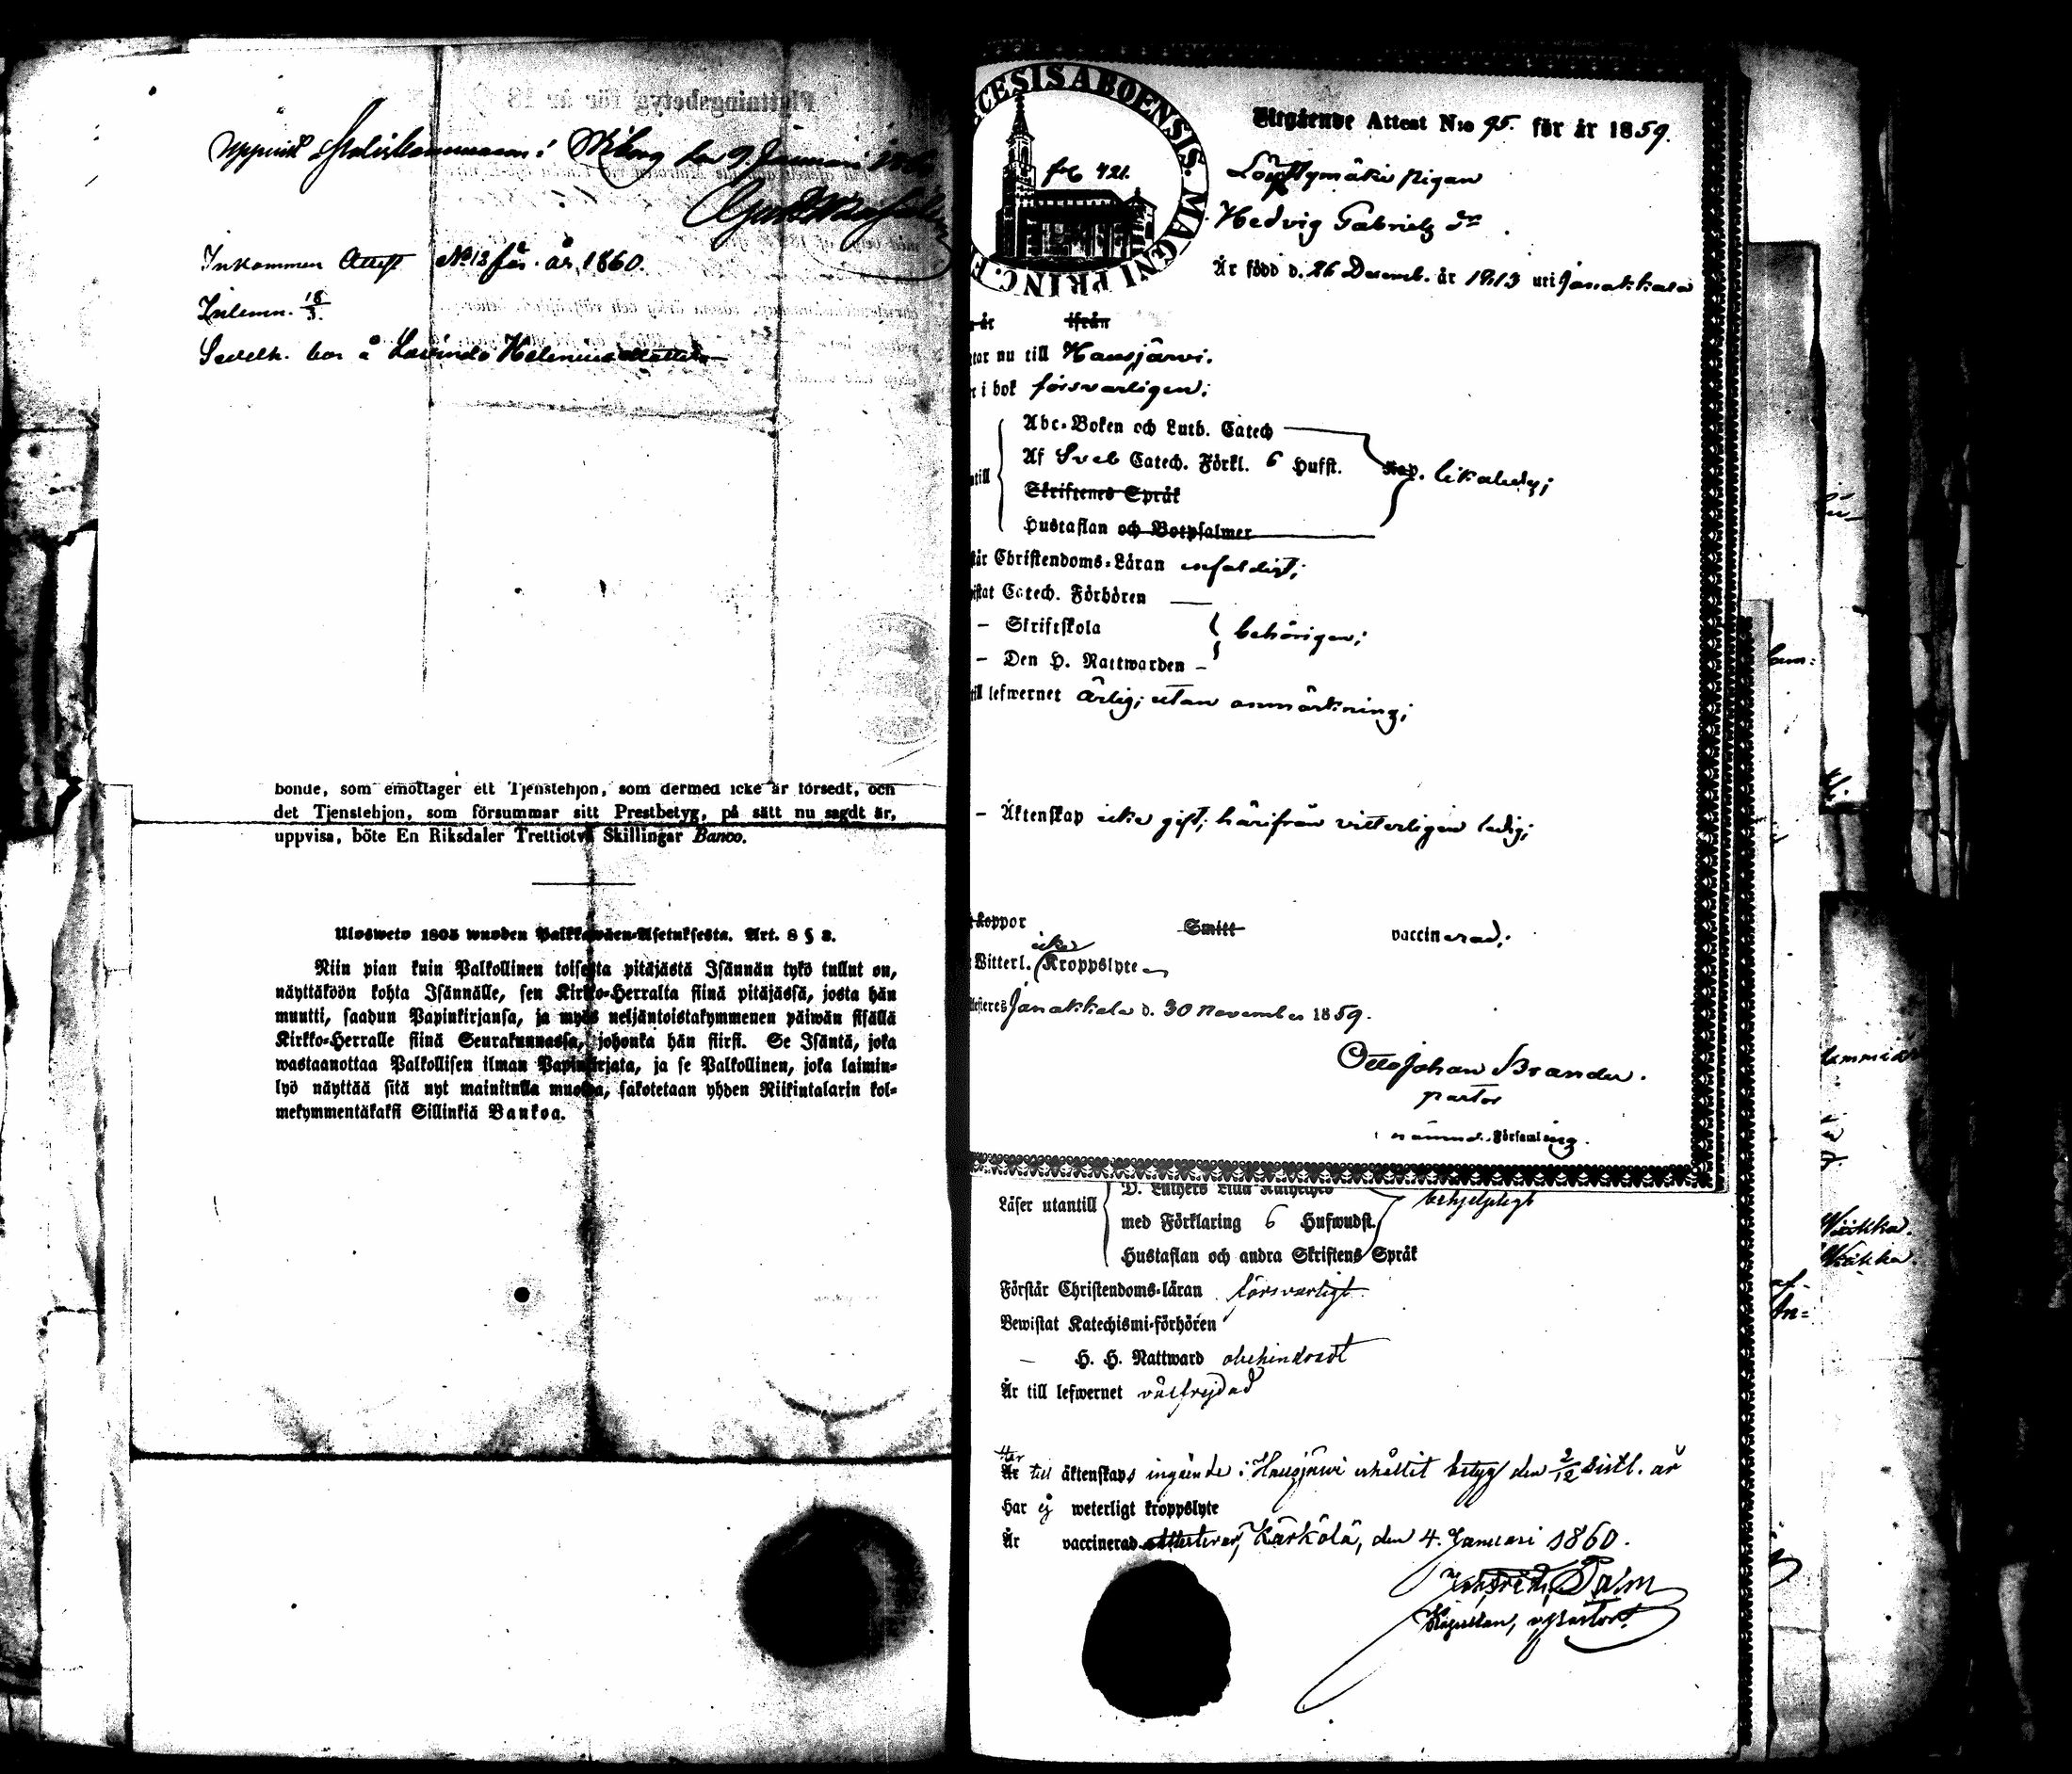 Uppvist Poliskammaren i Wiborg den 9. Januari 1860
Inkommen Attest No 13 för år 1860.
Inlemn. 18/3.
bor å
bonde, som emottager ett Tjenstehjon, som dermed icke är försedt, och
det Tjenstehjon, som försummar sitt Prestbetyg, på sätt nu sagdt är,
uppvisa, böte En Riksdaler Trettiotvå Skillingar Banco.
Ulosweto 1805 wuoden Palkkawäen-Asetuksesta. Art. 8 § 3.
Niin pian kuin Palkollinen toisesta pitäjästä Isännän tykö tullut on,
näyttäköön kohta Isännälle, sen Kirkko-Herralta siinä pitäjässä, josta hän
muutti, saadun Papinkirjansa, ja myös neljäntoistakymmenen päiwän sisällä
Kirkko-Herralle siinä Seurakunnassa, johonka hän siirsi. Se Isäntä, joka
wastaanottaa Palkollisen ilman Papinkirjata, ja se Palkollinen, joka laimin-
lyö näyttää sitä nyt mainitulla muotoa, sakotetaan yhden Riikintalarin kol-
mekymmentäkaksi Sillinkiä Bankoa.
CESIS ABOENSIS. MAGNI PRINC. F
fol 421.
Utgående Attest N:o 95. för år 1859.
pigan
Hedvig Gabriels dr
Är född d. 26 Decemb. år 1813 uti Janakkala
år ifrån
tar nu till Hausjärvi.
r i bok försvarligen;
Abc-Boken och Luth. Catech
Af Sveb Catech. Förkl. 6 Hufst. Kap. likaledes;
ntill
Skriftenes Språk
Hustaflan och Botpsalmer
står Christendoms-Läran enfaldigt;
istat Catech. Förhören
– Skriftskola behörigen;
– Den H. Nattwarden –
till lefwernet ärlig; utan anmärkning;
– Äktenskap icke gift; härifrån vitterligen ledig;
koppor Smitt vaccinerad;
icke
Witterl. Kroppslyte
esteres Janakkala d. 30 November 1859.
Otto Johan Brander.
pastor
nämnd. Församling.
D. Luthers Lilla Katheches
behjelpligt
Läser utantill
med Förklaring 6 Hufwudst.
Hustaflan och andra Skriftens Språk
Förstår Christendoms-läran försvarligt
Bewistat Katechismi-förhören
– H. H. Nattward obehindradt
Är till lefwernet välfrejdad
Har
Är till äktenskaps ingående i Hausjärwi erhållit betyg den 2/12 sistl. år
Har ej weterligt kroppslyte
Är vaccinerad attesterar, Kärkölä, den 4. Januari 1860.
Palm
Kapellan, v. pastor.